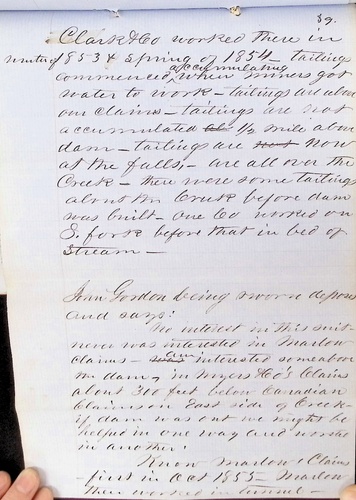 59.
Clark & Co worked there in
winter of 1853 & Spring of 1854 – tailings
commenced accumulating when miners got
water to work – tailings are above
our claims – tailings are not
accumulated 1/2 mile above
dam – tailings are now
at the falls – are all over the
Creek – there were some tailings
about the Creek before dam
was built – one Co worked on
S. fork before that in bed of
Stream –
Gordon being sworn deposes
and says:
No interest in this suit –
never was interested in Marlow
claims – am interested some above
the dam, in Myers & Co's Claims
about 300 feet below Canadian
Claims on East side of Creek –
if dam was out we might be
helped in one way and worse
in another:
Know Marlow Claims
first in Oct 1855 – Marlow
then worked in tunnel –